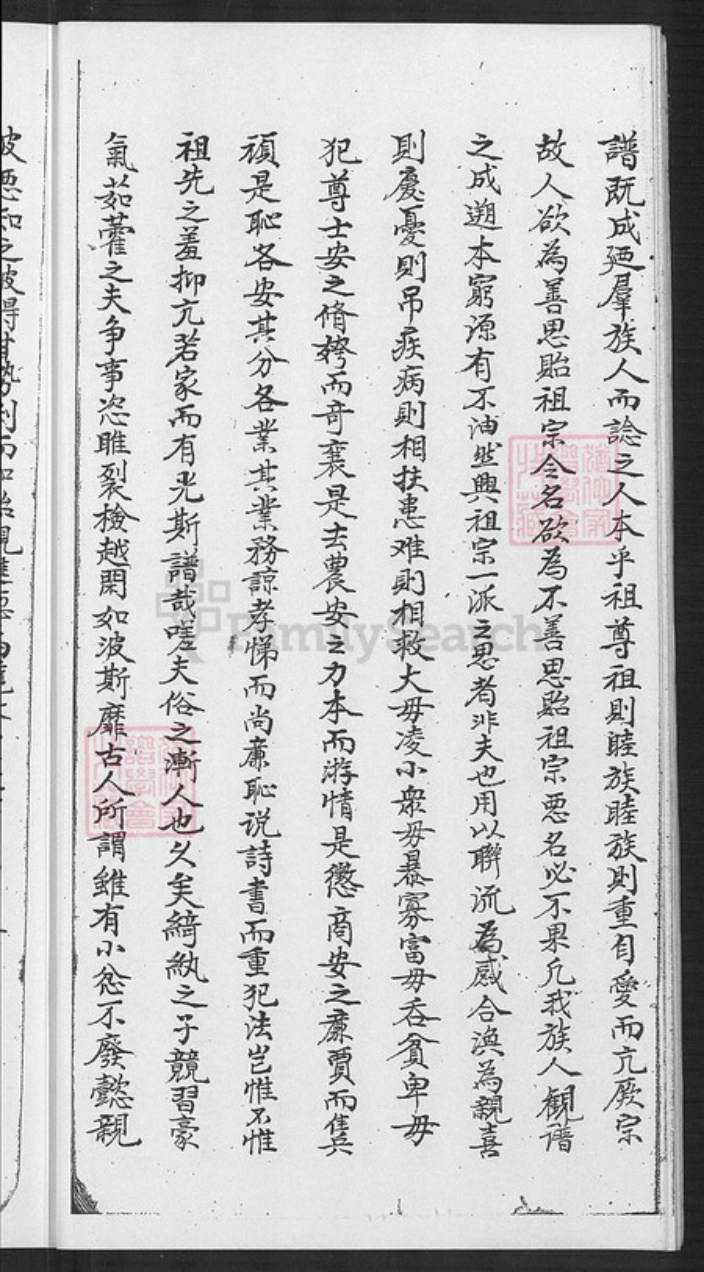 譜既成廼羣族人而諗之人本乎祖尊祖則睦族睦族則重自愛而亢厥宗
故人欲為善思貽祖宗令名欲為不善思貽祖宗惡名必不果凢我族人觀譜
之成遡本窮源有不油然興祖宗一派之思者非夫也用以聯流為慼合渙為親喜
則慶憂則吊疾病則相扶患难則相救大毋凌小衆毋暴寡富毋吞貧卑毋
犯尊士安之脩姱而竒袤是去農安之力本而游惰是懲商安之廉賈而隽
頑是恥各安其分各業其業務諒孝悌而尚亷恥说詩書而重犯法岂惟不惟
祖先之羞抑亢若家而有光斯譜哉嗟夫俗之漸人也久矣綺紈之子競習豪
氣茹藿之夫争事恣睢裂檢越閑如波斯靡古人所謂雖有小忿不廢懿親
FamilySearch